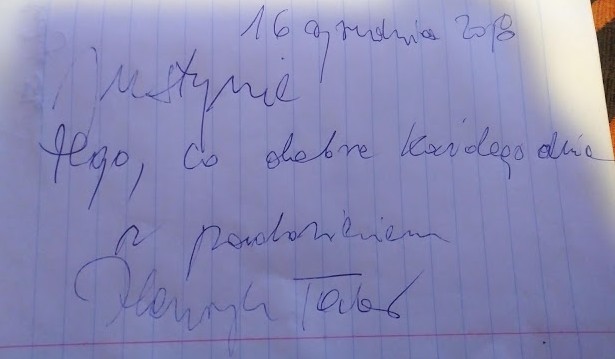 16 grudnia 2018
Justynie
tego, co dobre każdego dnia
z pozdrowieniem
Henryk